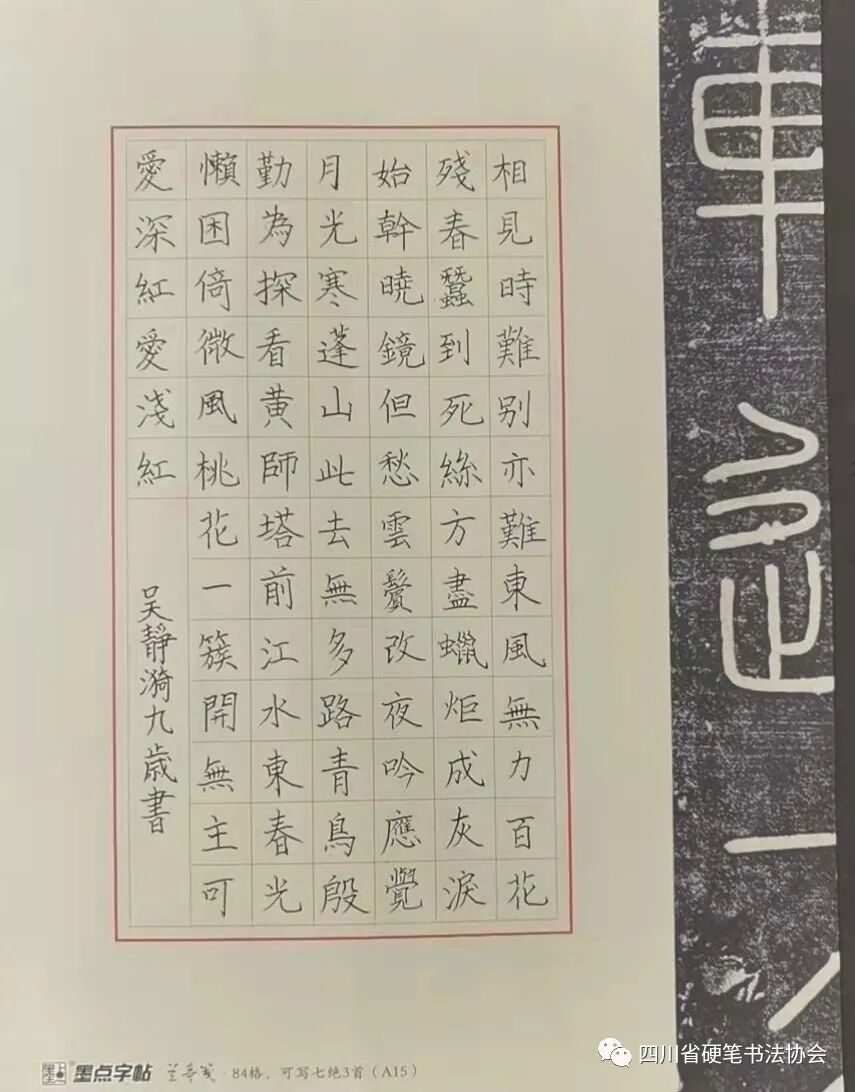 相見時難别亦難東風無力百花
殘春蠶到死絲方盡蠟炬成灰淚
始幹曉鏡但愁雲鬢改夜吟應覺
月光寒蓬山此去無多路青鳥殷
勤為探看黄師塔前江水東春光
懶困倚微風桃花一簇開無主可
愛深紅愛淺紅
吴靜漪九歳書
墨点字帖
84格，可写七绝3首（A15）
四川省硬笔书法协会